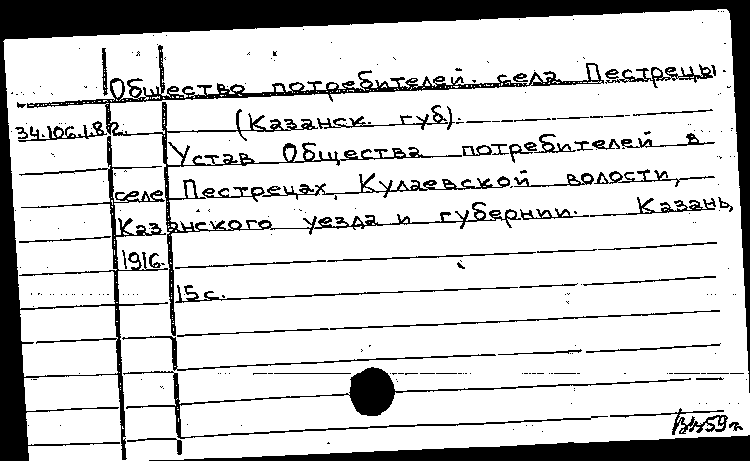 Общество потребителей села Пестрецы
34.106.1.82. (Казанск. губ).
Устав Общества потребителей в
селе Пестрецах, Кулаевской волости,
Казанского уезда и губернии. Казань,
1916.
15 с.